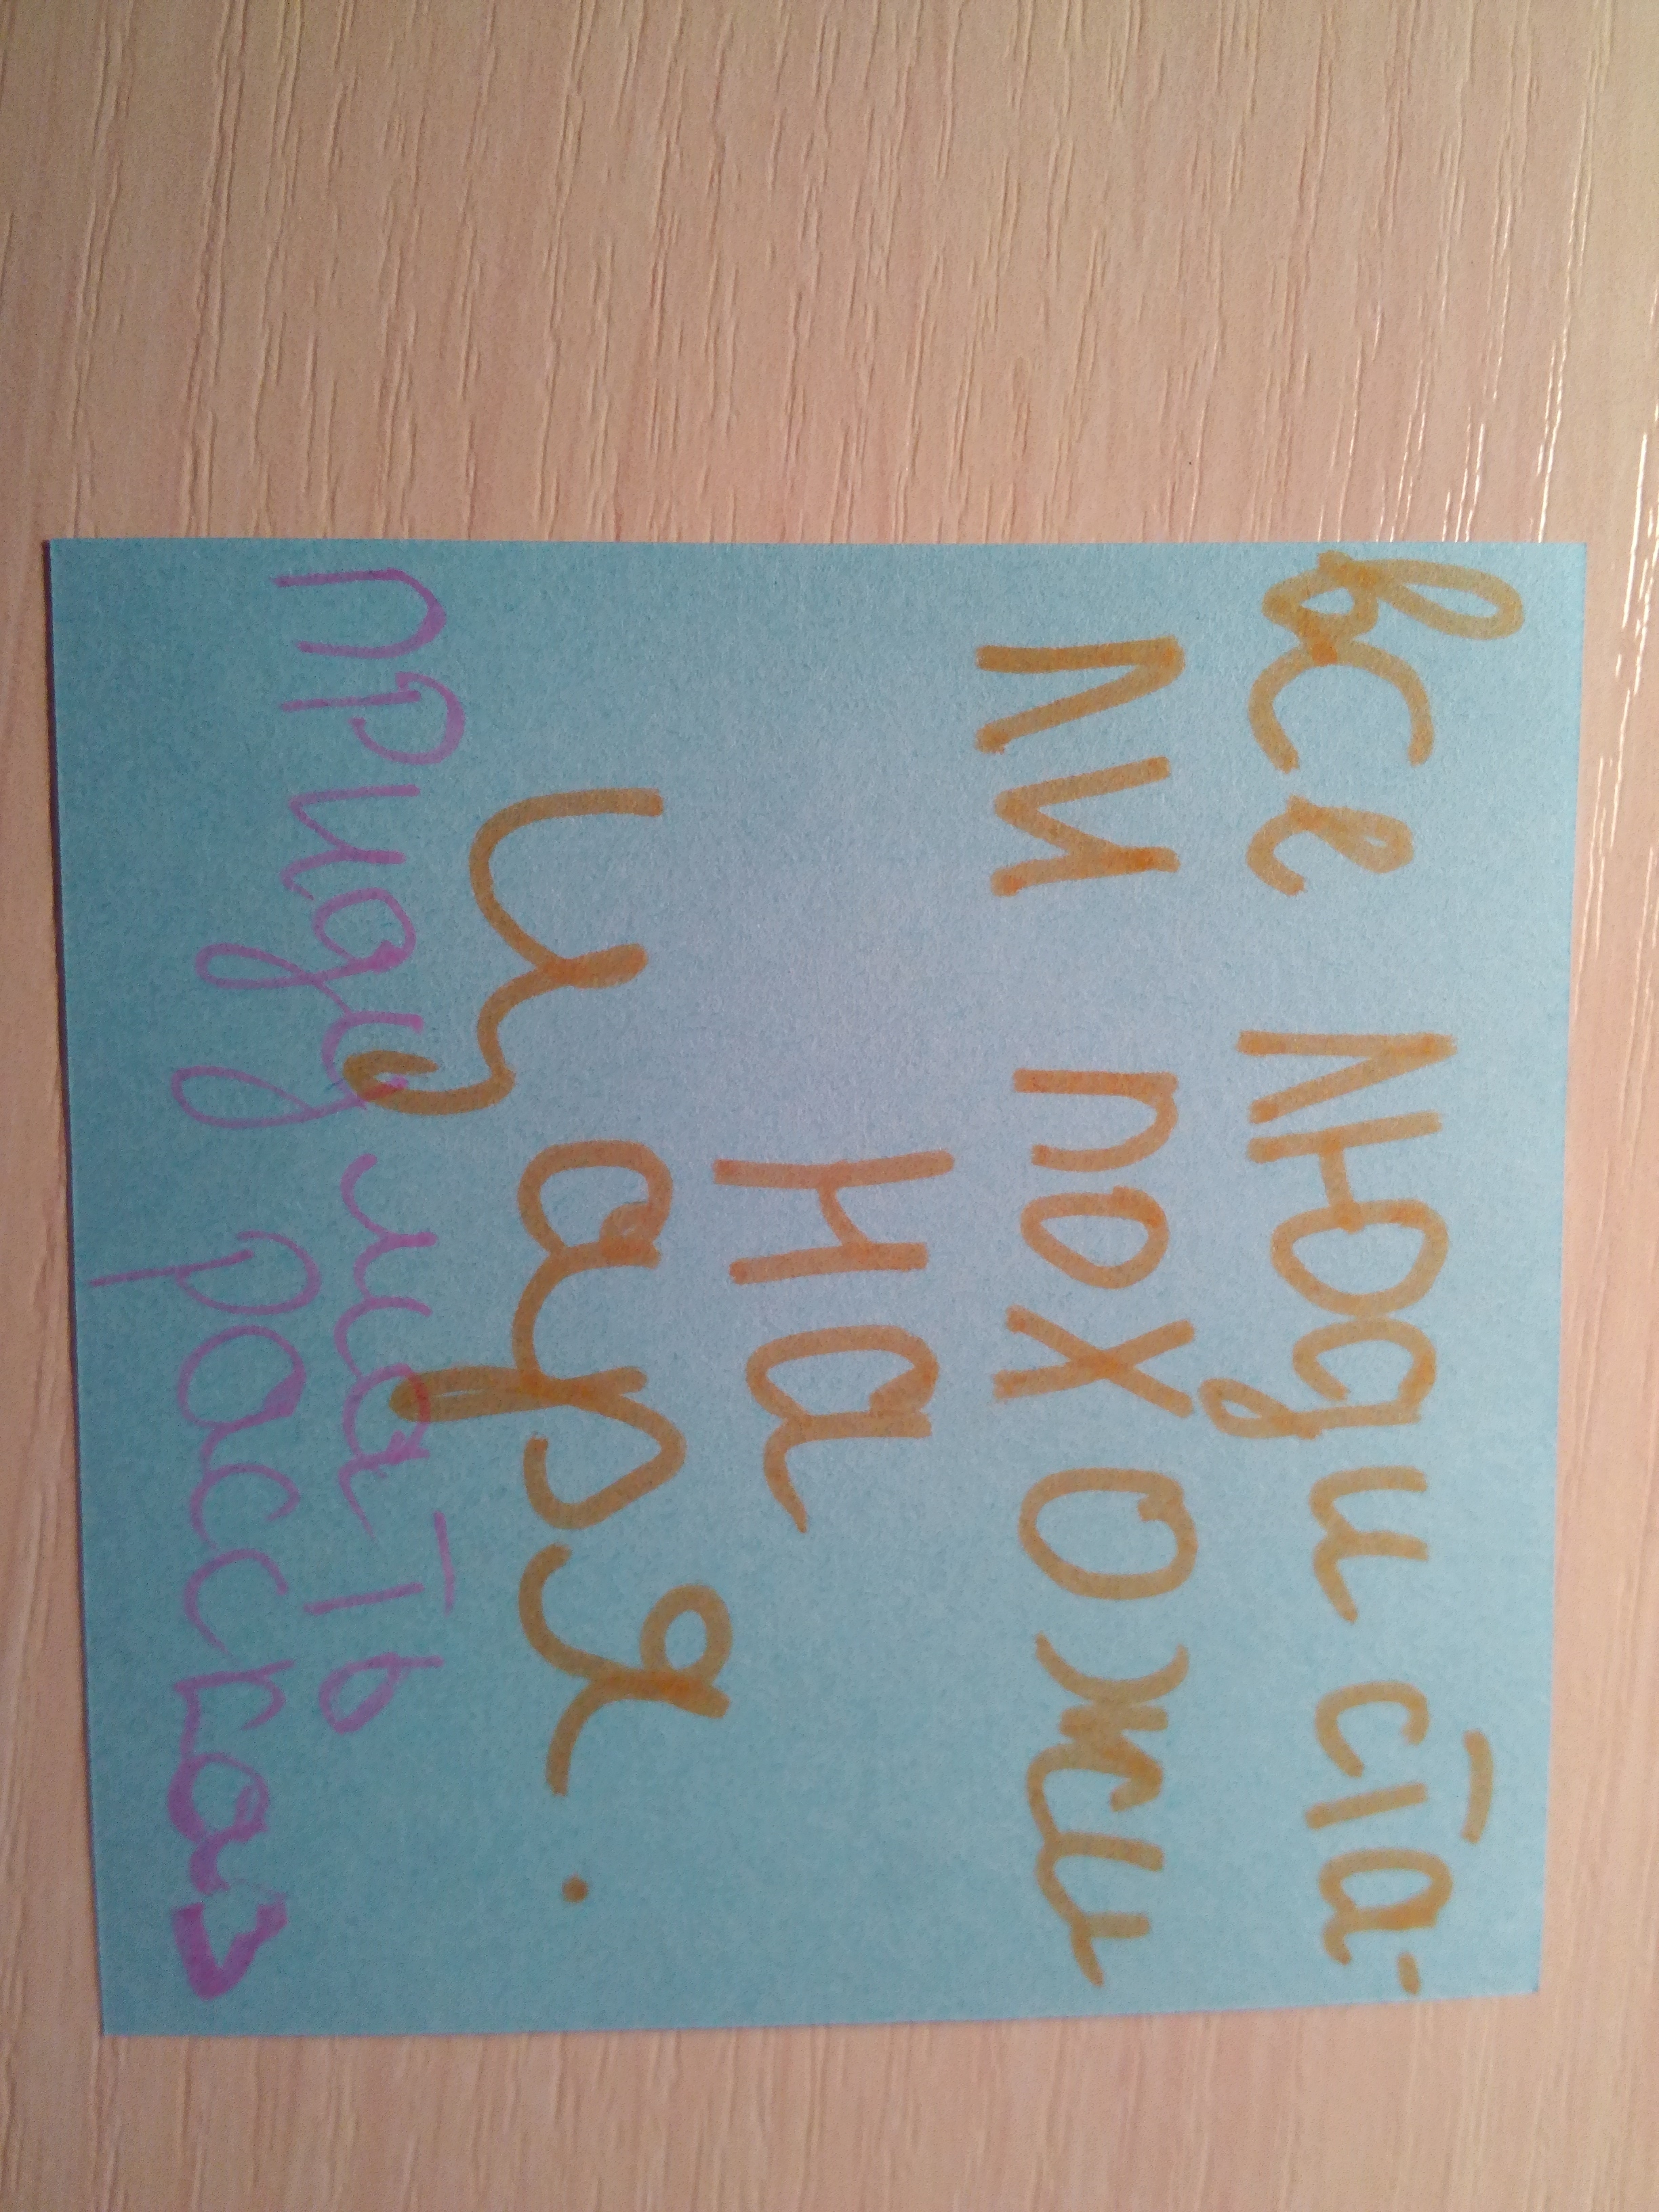 все люди ста-
ли похожи
на
царя.
придумать
рассказ